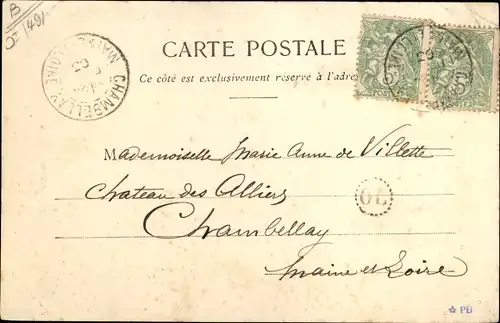 B
(49)
CARTE POSTALE
Ce côté est exclusivement réservé à l'adres
CHAMBELLAY
MAINE-ET-LOIRE
03
Mademoiselle Marie Anne de Villette
Chateau des Alliers
Chambellay
Maine et Loire
OL
☆ PB